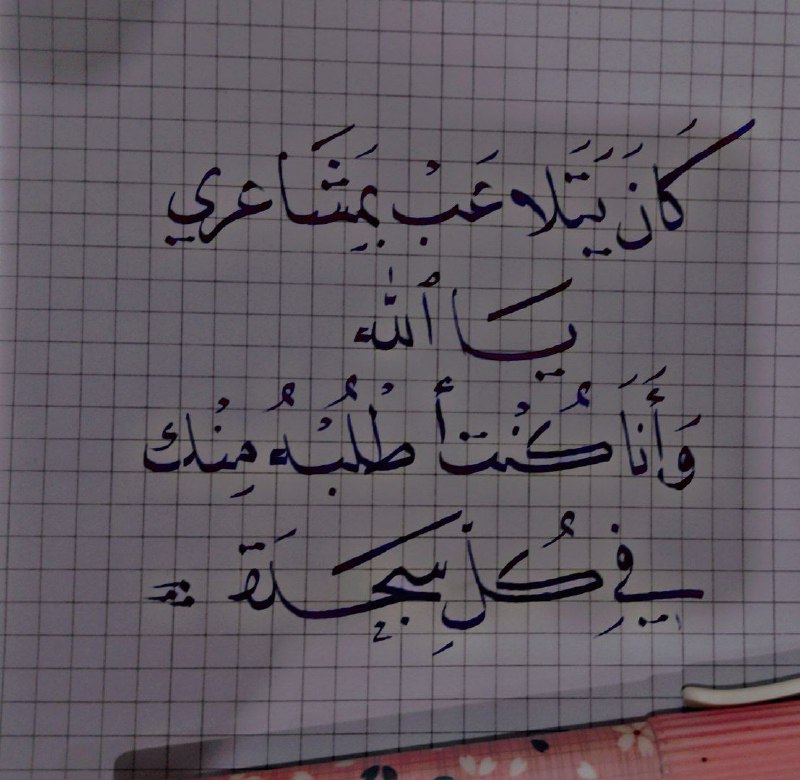 كَانَ يَتَلاعَبْ بِمَشَاعري
يَا ٱللّٰه
وَأَنَا كُنْت أطْلُبُهُ مِنْك
فِي كُلِ سَجدَة